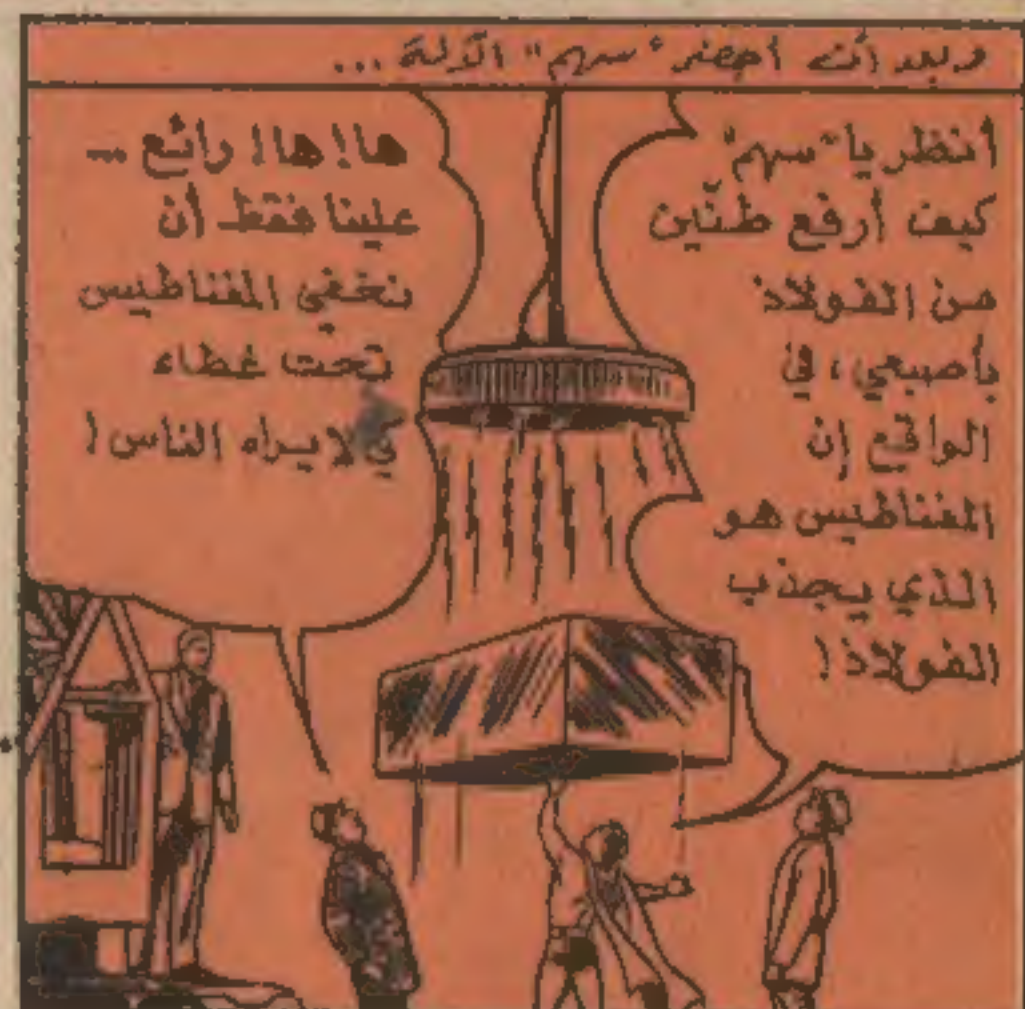 وبعد أن أحضر "سهم" الآلة ...
أنظر يا "سهم"
كيف أرفع طنّين
من الفولاذ
بأصبعي ، في
الواقع إن
المغناطيس هو
الذي يجذب
الفولاذ !
ها ! ها ! رائع ...
علينا فقط أن
نخفي المغناطيس
تحت غطاء
كي لا يراه الناس !